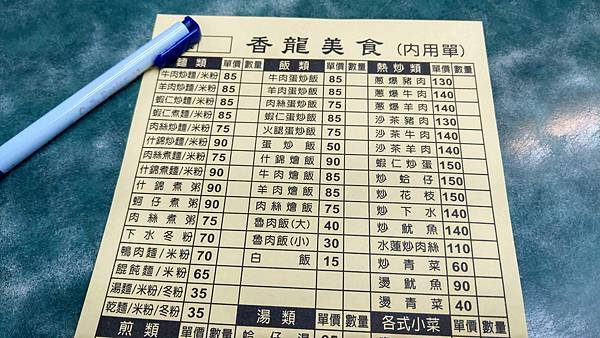 香龍美食(內用單)
麵類 單價 數量 飯類 單價 數量 熱炒類 單價 數量
牛肉炒麵/米粉 85 牛肉蛋炒飯 85 蔥爆豬肉 130
羊肉炒麵/米粉 85 羊肉蛋炒飯 85 蔥爆牛肉 140
蝦仁炒麵/米粉 85 肉絲蛋炒飯 75 蔥爆羊肉 140
蝦仁煮麵/米粉 85 蝦仁蛋炒飯 85 沙茶豬肉 130
肉絲炒麵/米粉 75 火腿蛋炒飯 75 沙茶牛肉 140
什錦炒麵/米粉 90 蛋炒飯 50 沙茶羊肉 140
肉絲煮麵/米粉 75 什錦燴飯 90 蝦仁炒蛋 150
什錦煮麵/米粉 90 牛肉燴飯 85 炒蛤仔 150
什錦煮粥 90 羊肉燴飯 85 炒花枝 150
蚵仔煮粥 90 肉絲燴飯 75 炒下水 140
肉絲煮粥 75 魯肉飯(大) 40 炒魷魚 140
下水冬粉 70 魯肉飯(小) 30 水蓮炒肉絲 110
鴨肉麵/米粉 70 白飯 15 炒青菜 60
餛飩麵/米粉 65 燙魷魚 90
湯麵/米粉/冬粉 35 燙青菜 40
乾麵/米粉/冬粉 35
煎類 單價 數量 湯類 單價 數量 各式小菜 單價 數量
蛤仔湯